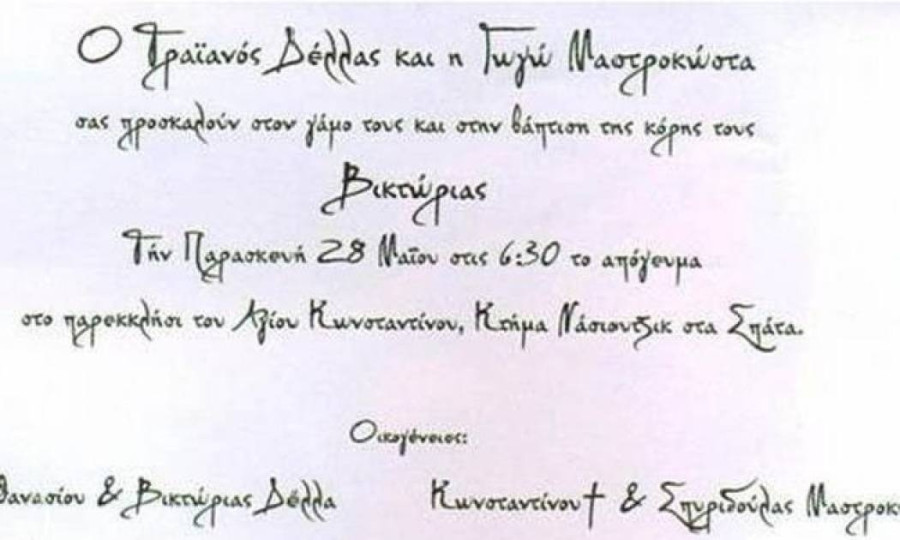 Ο Τραϊανός Δέλλας και η Γωγώ Μαστροκώστα
σας προσκαλούν στον γάμο τους και στην βάπτιση της κόρης τους
Βικτώριας
Τήν Παρασκευή 28 Μαΐου στις 6:30 το απόγευμα
στο παρεκκλήσι του Αγίου Κωνσταντίνου, Κτήμα Νάσιουτζικ στα Σπάτα.
Οικογένειες:
θανασίου & Βικτώριας Δέλλα Κωνσταντίνου† & Σπυριδούλας Μαστροκ